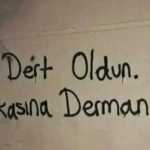 Dert Oldun.
kasına Derman